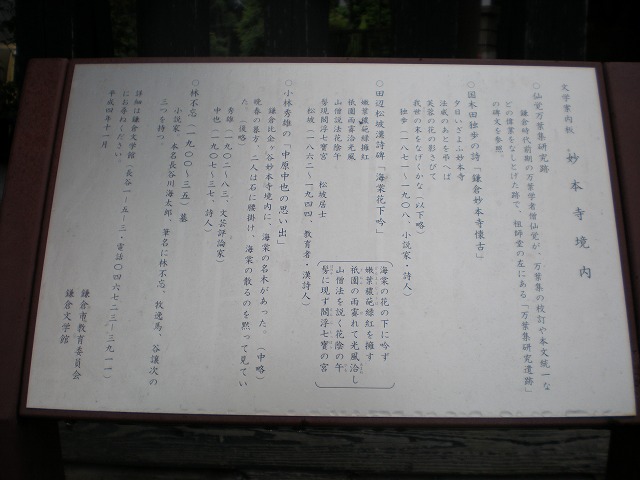 文学案内板 妙本寺境内
○仙覚万葉集研究跡
鎌倉時代前期の万葉学者僧仙覚が、万葉集の校訂や本文統一な
どの偉業をなしとげた跡で、祖師堂の左にある「万葉集研究遺跡」
の碑文を参照
○国木田独歩の詩「鎌倉妙本寺懐古」
夕日いざよふ妙本寺
法威のあとを弔へば
芙蓉の花の影さびて
我世の末をなげくかな（以下略）
独歩（一八七一～一九〇八、小説家・詩人）
○田辺松坡漢詩碑「海棠花下吟」
海棠の花の下に吟ず
嫩葉穠葩緑擁紅
嫩葉穠葩緑紅を擁す
祇園雨霽洽光風
祇園の雨霽れて光風洽し
山僧説法花陰午
山僧法を説く花陰の午
髣現閻浮七宝宮
髣に現ず閻浮七宝の宮
松坡居士
松坡（一八六二～一九四四、教育者・漢詩人）
○小林秀雄の「中原中也の思い出」
鎌倉比企ヶ谷妙本寺境内に、海棠の名木があった。（中略）
晩春の暮方、二人は石に腰掛け、海棠の散るのを黙って見てい
た。（後略）
秀雄（一九〇二～八三、文芸評論家）
中也（一九〇七～三七、詩人）
○林不忘（一九〇〇～三五）墓
小説家・本名長谷川海太郎、筆名に林不忘、牧逸馬、谷譲次の
三つを持つ
詳細は鎌倉文学館（長谷一-五-三・電話〇四六七-二三-三九一一）
にお尋ねください。
平成四年十一月
鎌倉市教育委員会
鎌倉文学館